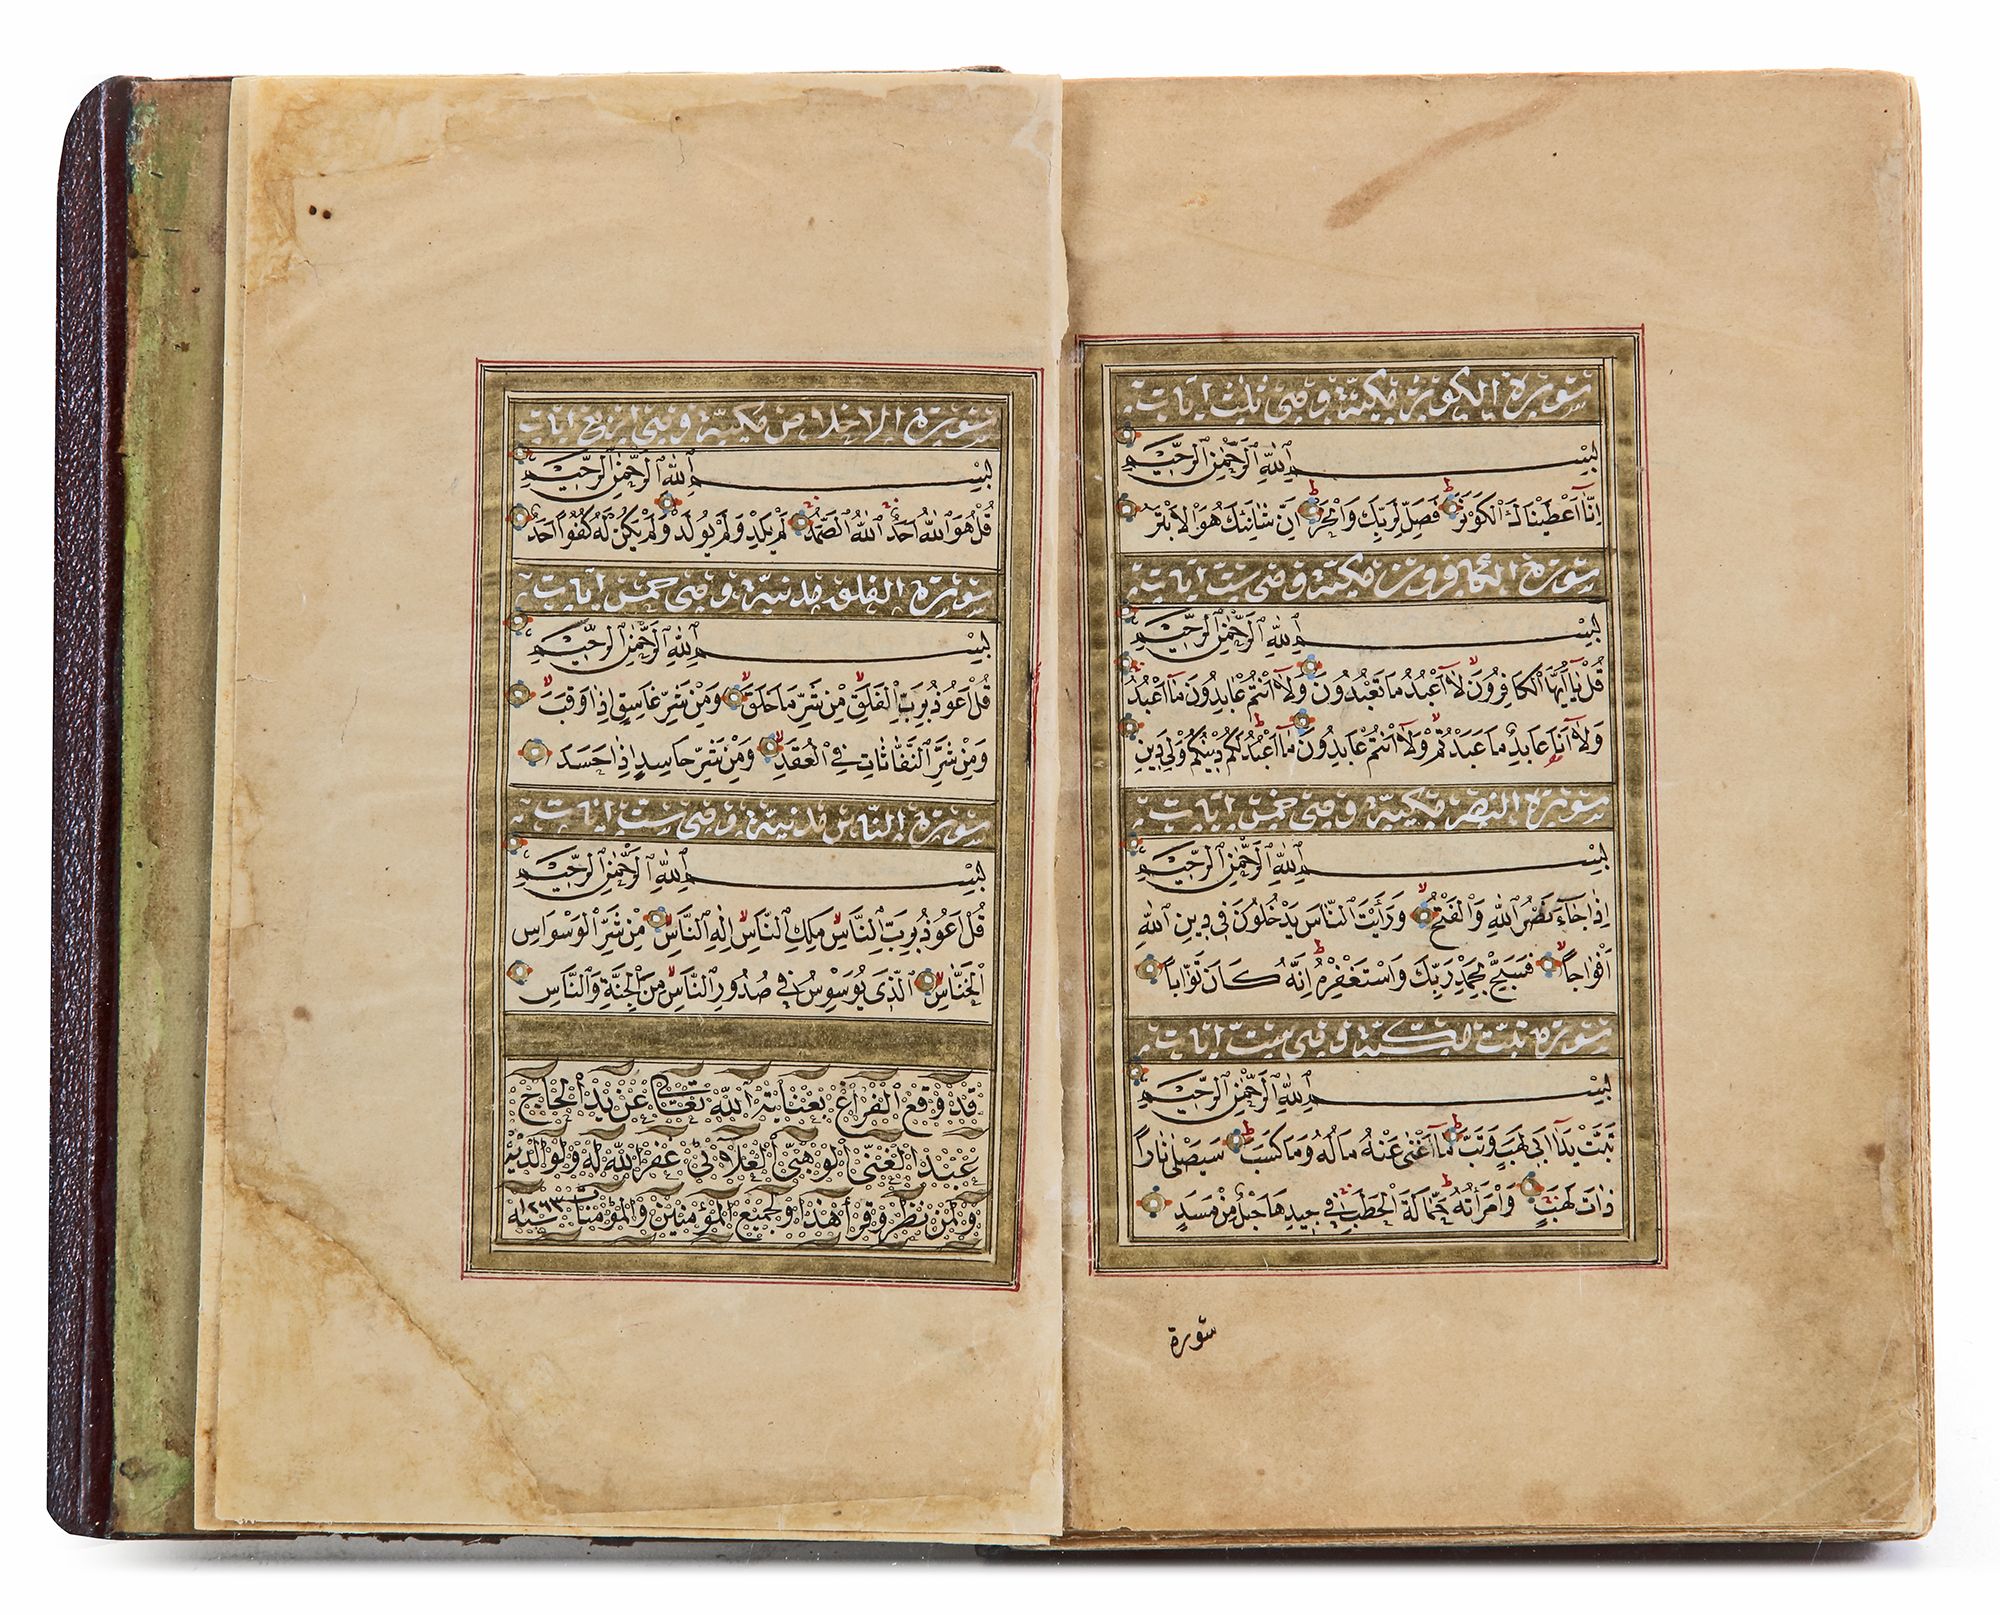 سورة الكوثر مكية وهى ثلث ايات
بِسْمِ اللهِ الرَّحْمٰنِ الرَّحِيمِ
اِنَّا اَعْطَيْنَاكَ الْكَوْثَرَ فَصَلِّ لِرَبِّكَ وَانْحَرْ اِنَّ شَانِئَكَ هُوَ الْاَبْتَرُ
سورة الكافرون مكية وهى ست ايات
بِسْمِ اللهِ الرَّحْمٰنِ الرَّحِيمِ
قُلْ يَا اَيُّهَا الْكَافِرُونَ لَا اَعْبُدُ مَا تَعْبُدُونَ وَلَا اَنْتُمْ عَابِدُونَ مَا اَعْبُدُ
وَلَا اَنَا عَابِدٌ مَا عَبَدْتُمْ وَلَا اَنْتُمْ عَابِدُونَ مَا اَعْبُدُ لَكُمْ دِينُكُمْ وَلِيَ دِينِ
سورة النصر مكية وهى خمس ايات
بِسْمِ اللهِ الرَّحْمٰنِ الرَّحِيمِ
اِذَا جَاءَ نَصْرُ اللهِ وَالْفَتْحُ وَرَاَيْتَ النَّاسَ يَدْخُلُونَ فِي دِينِ اللهِ
اَفْوَاجًا فَسَبِّحْ بِحَمْدِ رَبِّكَ وَاسْتَغْفِرْهُ اِنَّهُ كَانَ تَوَّابًا
سورة تبت مكية وهى ست ايات
بِسْمِ اللهِ الرَّحْمٰنِ الرَّحِيمِ
تَبَّتْ يَدَا اَبِي لَهَبٍ وَتَبَّ مَا اَغْنٰى عَنْهُ مَالُهُ وَمَا كَسَبَ سَيَصْلٰى نَارًا
ذَاتَ لَهَبٍ وَامْرَاَتُهُ حَمَّالَةَ الْحَطَبِ فِي جِيدِهَا حَبْلٌ مِنْ مَسَدٍ
سورة
سورة الاخلاص مكية وهى اربع ايات
بِسْمِ اللهِ الرَّحْمٰنِ الرَّحِيمِ
قُلْ هُوَ اللهُ اَحَدٌ اللهُ الصَّمَدُ لَمْ يَلِدْ وَلَمْ يُولَدْ وَلَمْ يَكُنْ لَهُ كُفُوًا اَحَدٌ
سورة الفلق مدنية وهى خمس ايات
بِسْمِ اللهِ الرَّحْمٰنِ الرَّحِيمِ
قُلْ اَعُوذُ بِرَبِّ الْفَلَقِ مِنْ شَرِّ مَا خَلَقَ وَمِنْ شَرِّ غَاسِقٍ اِذَا وَقَبَ
وَمِنْ شَرِّ النَّفَّاثَاتِ فِي الْعُقَدِ وَمِنْ شَرِّ حَاسِدٍ اِذَا حَسَدَ
سورة الناس مدنية وهى ست ايات
بِسْمِ اللهِ الرَّحْمٰنِ الرَّحِيمِ
قُلْ اَعُوذُ بِرَبِّ النَّاسِ مَلِكِ النَّاسِ اِلٰهِ النَّاسِ مِنْ شَرِّ الْوَسْوَاسِ
الْخَنَّاسِ الَّذِي يُوَسْوِسُ فِي صُدُورِ النَّاسِ مِنَ الْجِنَّةِ وَالنَّاسِ
قد وقع الفراغ بعناية الله تعالى عن يد الحاج
عبد الغنى الوهبى العلائى غفر الله له ولوالديه
ولمن نظر وقرأ هذا ولجميع المؤمنين والمؤمنات سنة ١٢٦٣